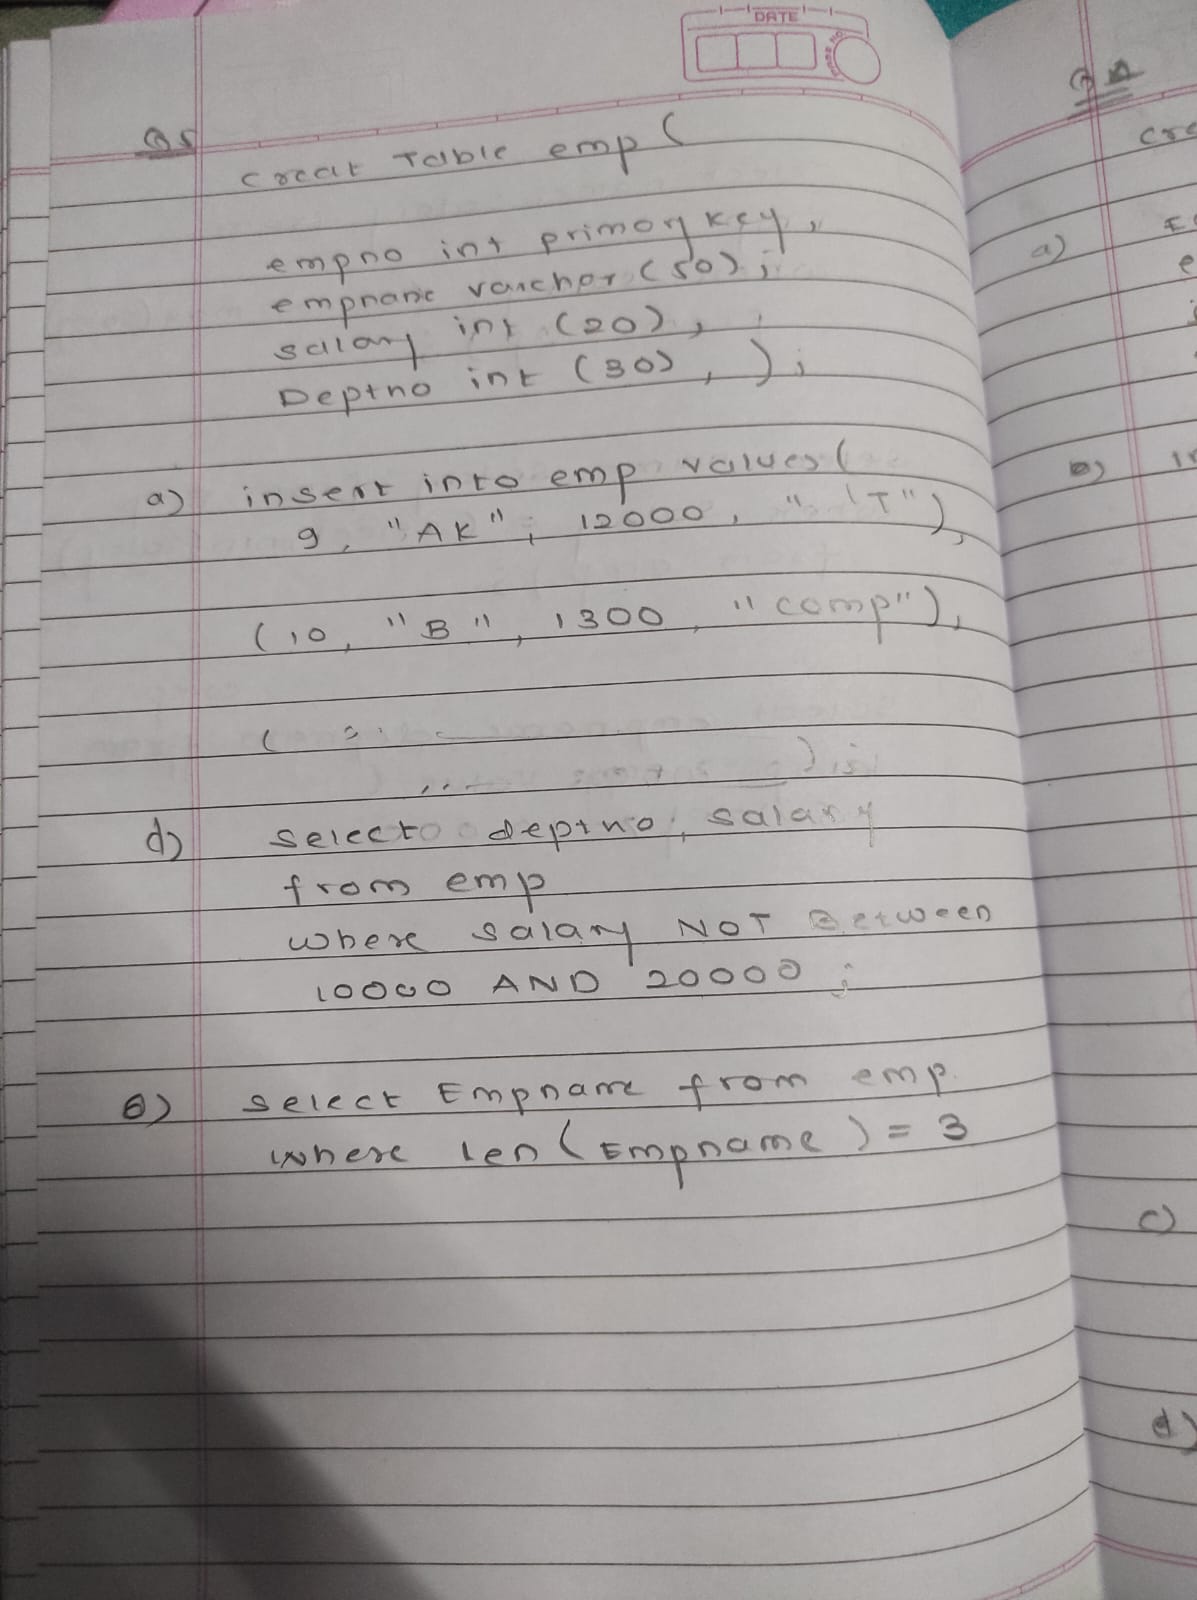 DATE
Q5
creat Table emp (
empno int primory key,
empname varchor (50);
salary int (20),
Deptno int (30), );
a) insert into emp values (
9, "AK", 12000, "IT"),
(10, "B", 1300, "comp"),
(
) ;
d) select deptno, salary
from emp
where salary NOT Between
10000 AND 20000 ;
e) select Empname from emp.
where len (Empname) = 3
a)
b)
c)
d)